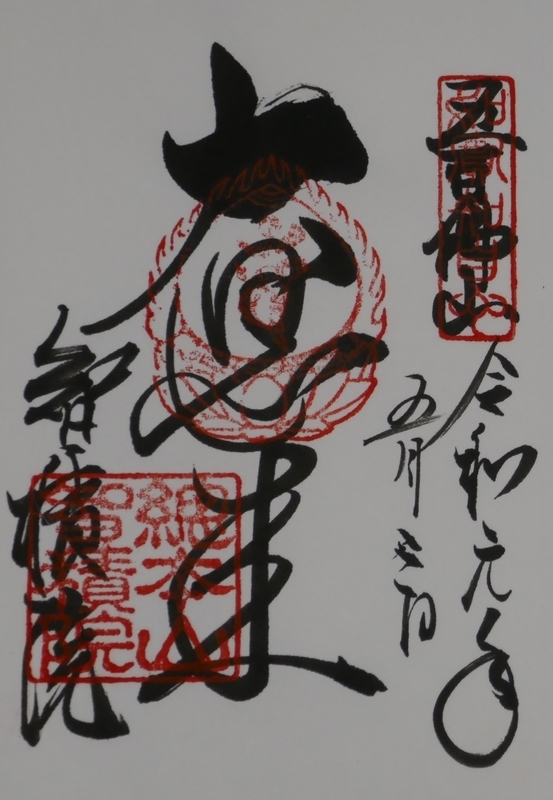 五百佛山
令和元年
五月
大日如来
智積院
總本山
智積院